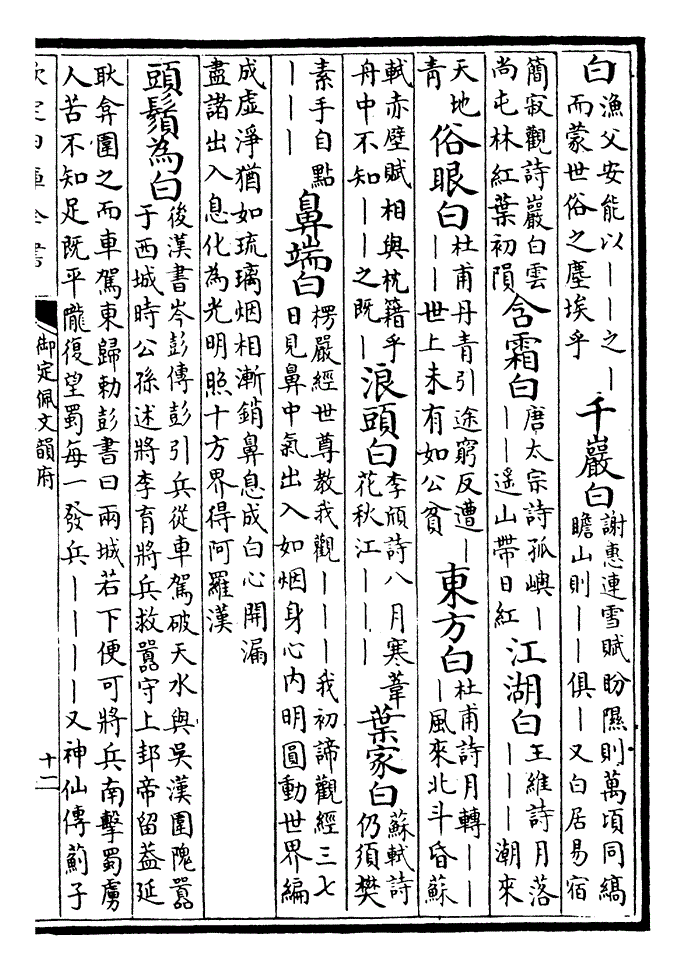 白
漁父安能以丨丨之丨
而蒙世俗之塵埃乎
千巖白
謝惠連雪賦盼隰則萬頃同縞
瞻山則丨丨俱丨又白居易宿
簡寂觀詩巖白雲
尚屯林紅葉初隕
含霜白
唐太宗詩孤嶼丨
丨丨遥山帶日紅
江湖白
王維詩月落
丨丨丨潮來
天地
青
俗眼白
杜甫丹青引途窮反遭丨
丨丨世上未有如公貧
東方白
杜甫詩月轉丨丨
丨風來北斗昏蘇
軾赤壁賦相與枕籍乎
舟中不知丨丨之既丨
浪頭白
李頎詩八月寒葦
花秋江丨丨丨
葉家白
蘇軾詩
仍須樊
素手自點
丨丨丨
鼻端白
楞嚴經世尊教我觀丨丨丨我初諦觀經三七
日見鼻中氣出入如烟身心内明圓動世界編
成虛淨猶如琉璃烟相漸銷鼻息成白心開漏
盡諸出入息化為光明照十方界得阿羅漢
頭鬚為白
後漢書岑彭傳彭引兵從車駕破天水與吳漢圍隗囂
于西城時公孫述將李育將兵救囂守上邽帝留葢延
耿弇圍之而車駕東歸勅彭書曰兩城若下便可將兵南擊蜀虜
人苦不知足既平隴復望蜀每一發兵丨丨丨丨又神仙傳薊子
欽定四庫全書
御定佩文韻府
十二